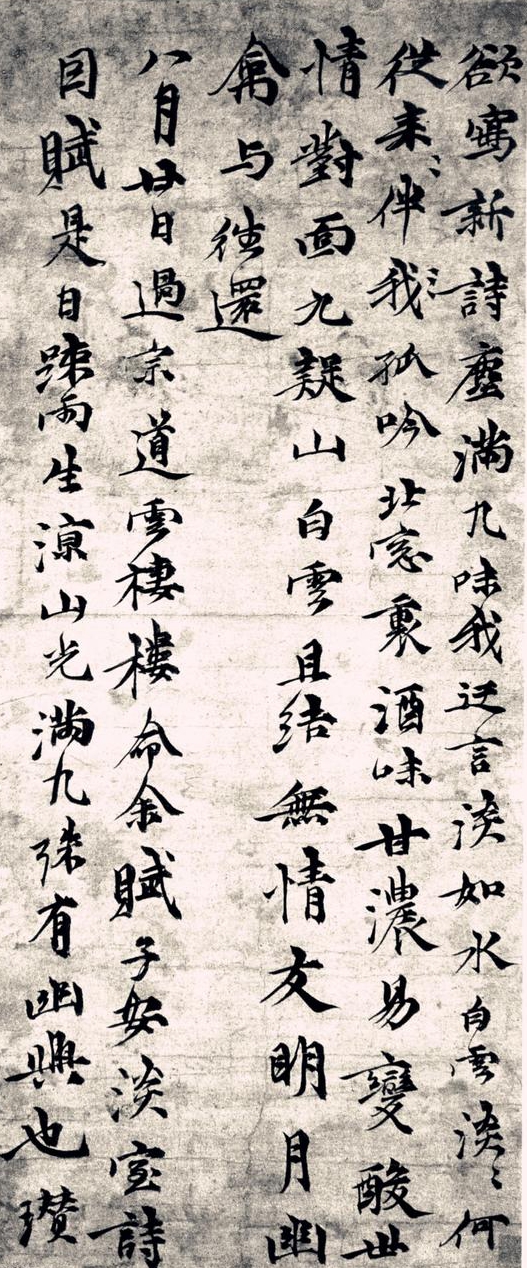 欲寫新詩塵滿九味我迂言淡如水白雲淡〻何
從来〻伴我〻孤吟北窓裏酒味甘濃易變酸世
情對面九疑山白雲且結無情友明月幽
禽与徃還
八月廿日過宗道雲樓樓命余賦子安淡室詩
因賦是日踈雨生涼山光滿九殊有幽興也瓚